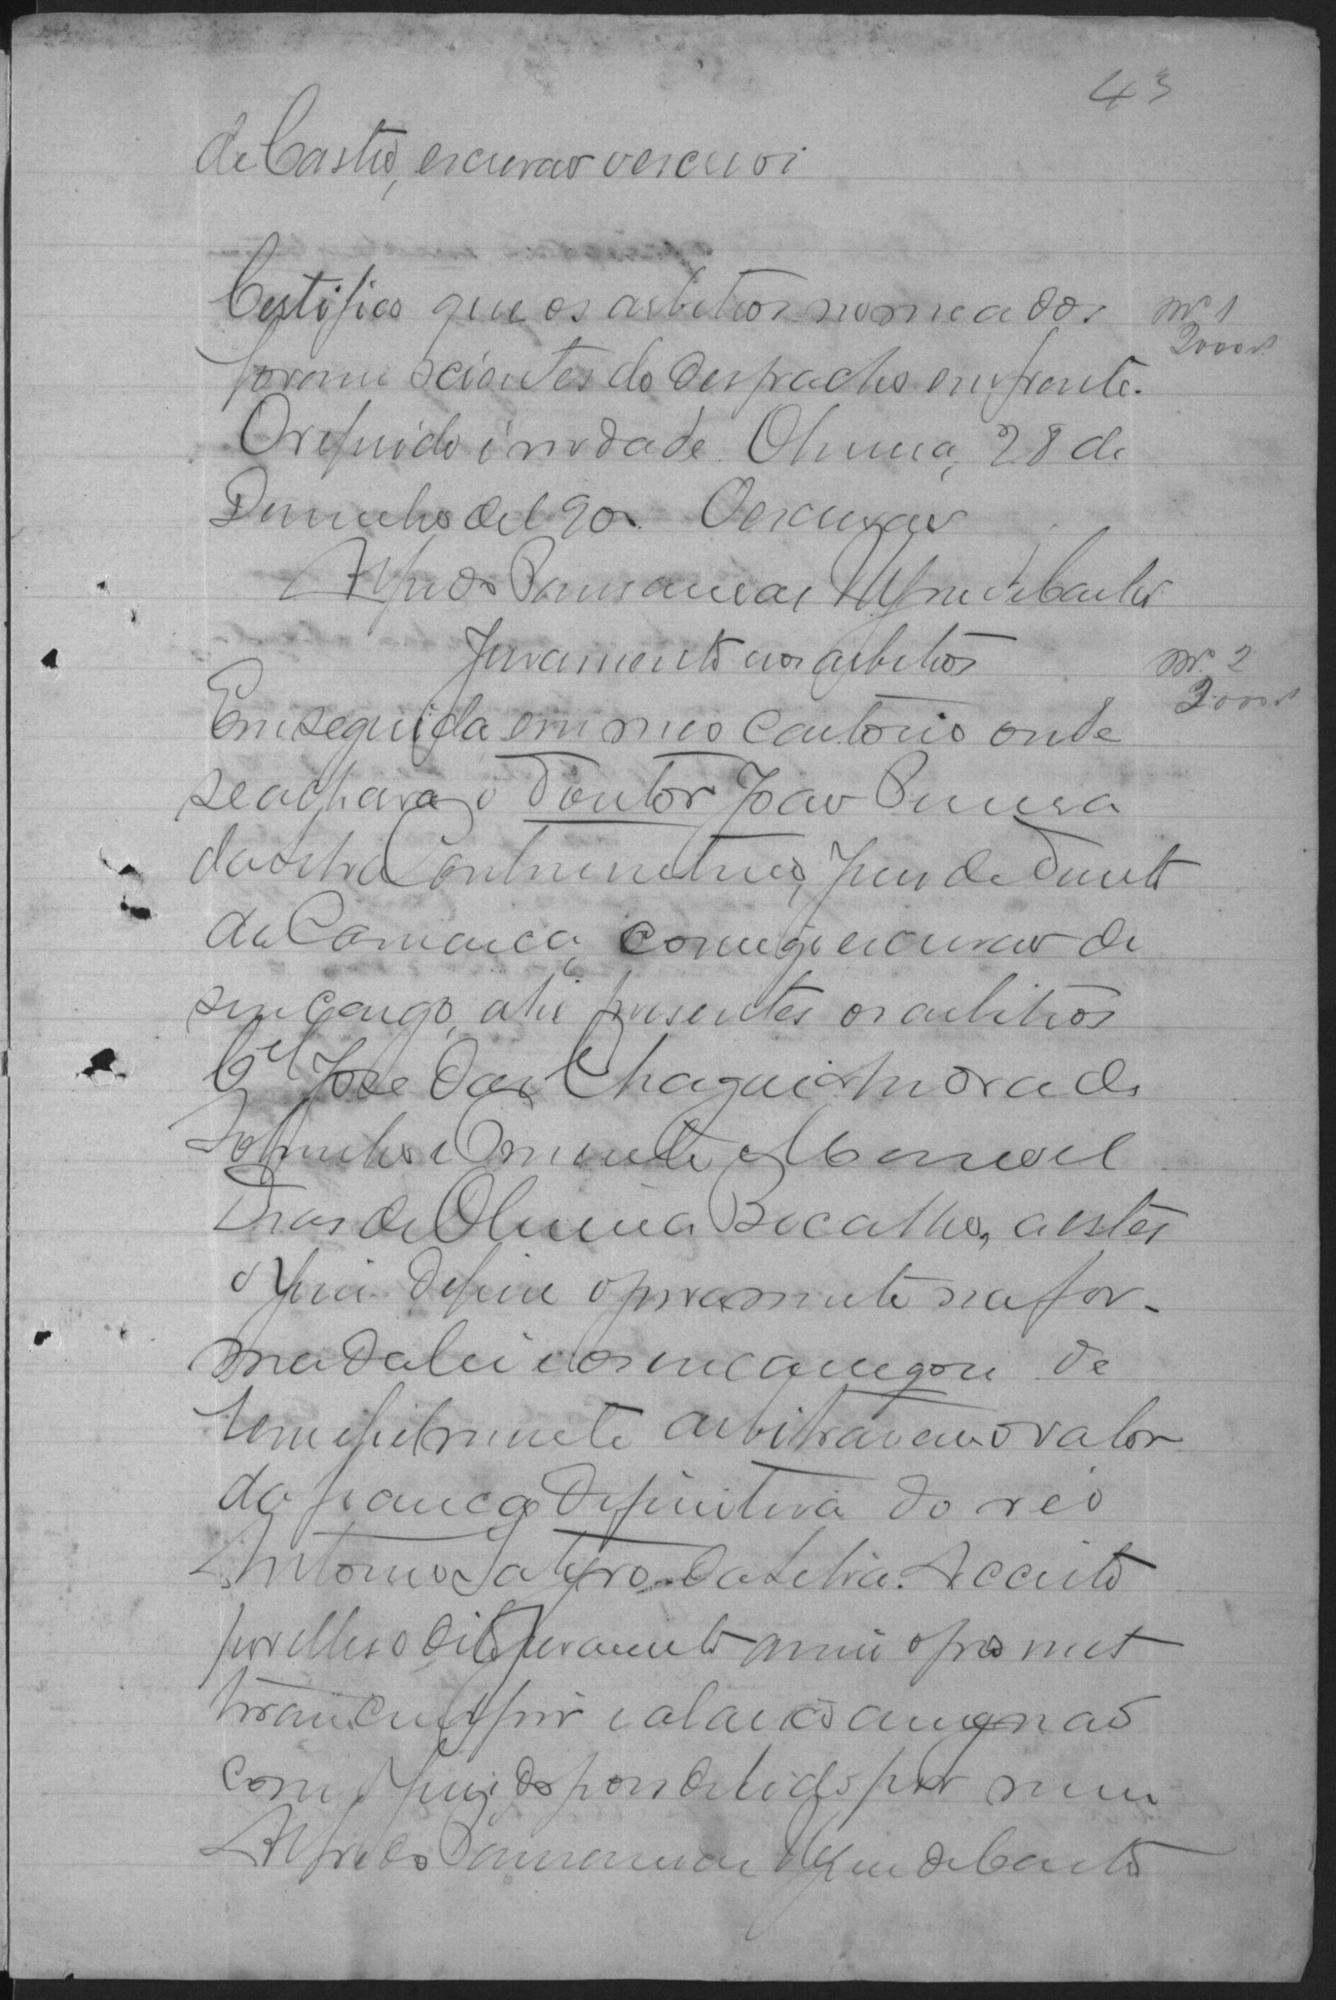 43
de Castro, escrivão o escrevi
Certifico que os arbitros nomeados
foram scientes do despacho em frente.
O referido é verdade. Oliveira, 28 de
Junho de 190 . O escrivão
Alfredo de Castro
Juramento aos arbitros
Em seguida em meo cartorio onde
se achava o Doutor João Pereira
da Silva Juiz de Direito
da Comarca, comigo escrivão de
seu cargo, ahi presentes os arbitros
Cel José das Chagas Andrade
Sobrinho e Manoel
Dias de Oliveira Bicalho, a estes
o Juiz deferiu o juramento na for-
ma da lei e os encarregou de
bem e fielmente arbitrarem o valor
da fiança definitiva do réo
Antonio Satyro da Silva. Acceito
por elles o dito juramento assim o promet
teram cumprir e abaixo assignão
com o Juiz depois de lido por mim
Alfredo de Castro
nº 1
2000rs
nº 2
2000rs